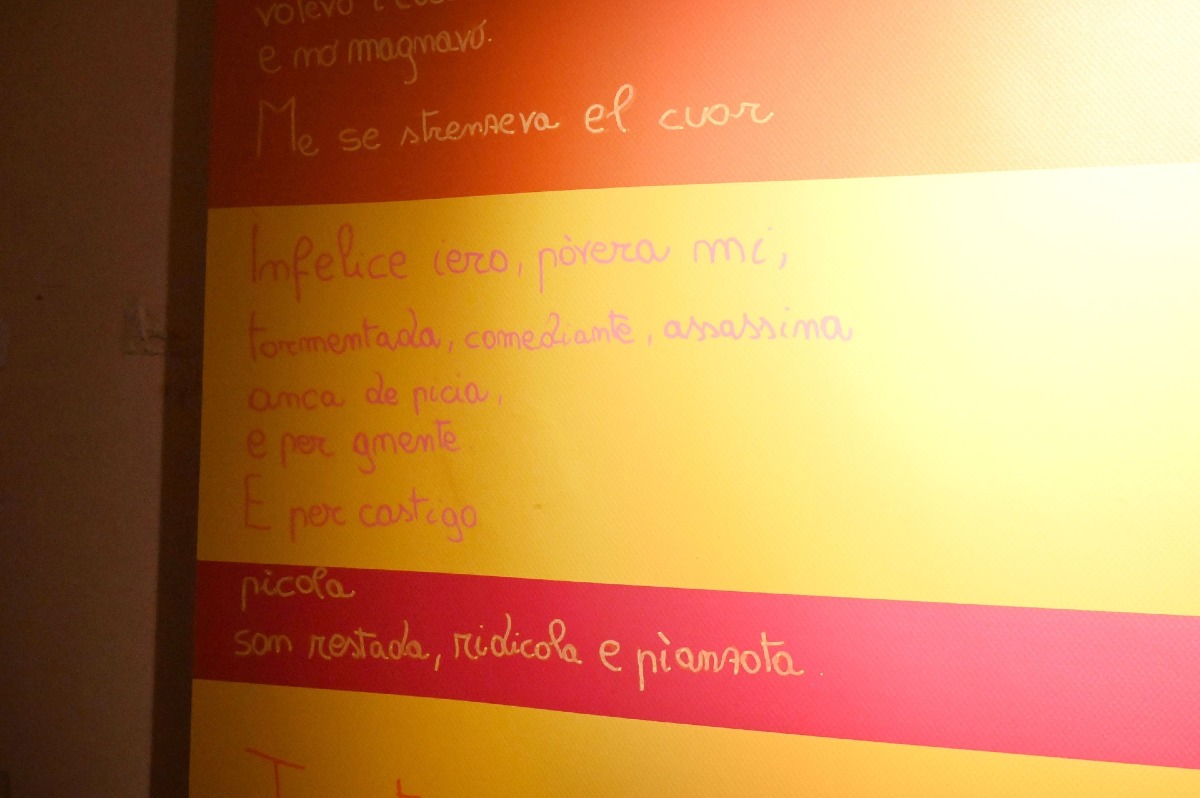 volevo
e no magnavo.
Me se strenzeva el cuor
Infelice iero, pòvera mi,
tormentada, comediante, assassina
anca de picia,
e per gnente
E per castigo
picola
son restada, ridicola e piànzota.